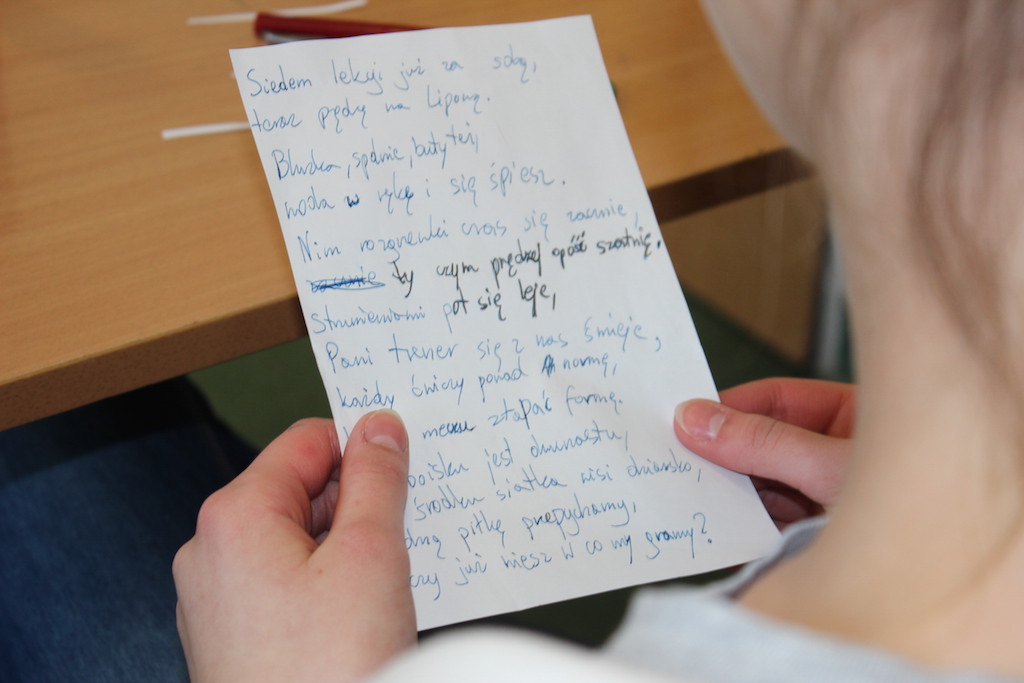 Siedem lekcji już za sobą,
teraz pędzę na Lipową.
Bluzka, spodnie, buty też,
woda w rękę i się śpiesz.
Nim rozgrzewki czas się zacznie,
Ty czym prędzej opóść szatnię.
Strumieniami pot się leje,
Pani trener się z nas śmieje,
każdy ćwiczy ponad normę,
meczu złapać formę.
boisku jest dwunastu,
środku siatka wisi
piłkę przepychamy,
czy już wiesz w co my gramy?